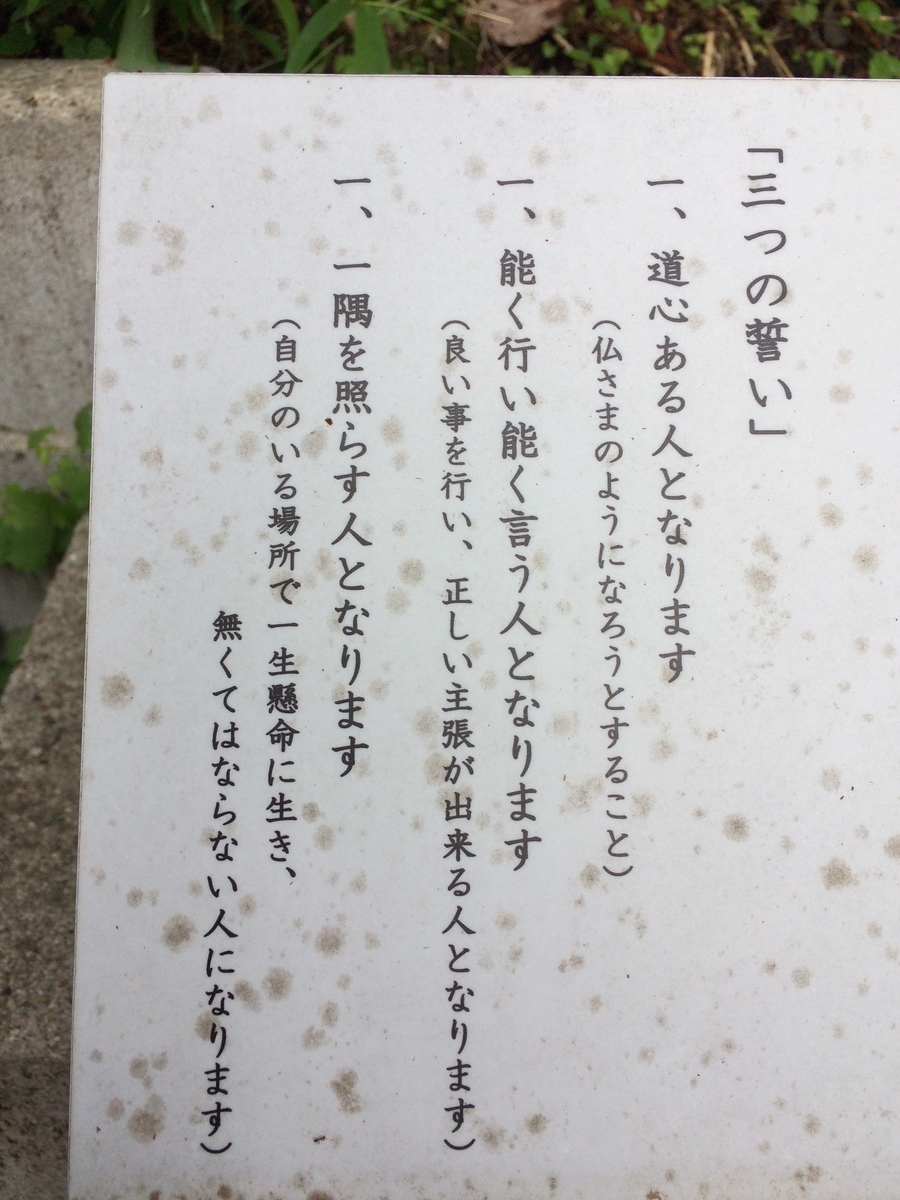 「三つの誓い」
一、道心ある人となります
（仏さまのようになろうとすること）
一、能く行い能く言う人となります
（良い事を行い、正しい主張が出来る人となります）
一、一隅を照らす人となります
（自分のいる場所で一生懸命に生き、
無くてはならない人になります）